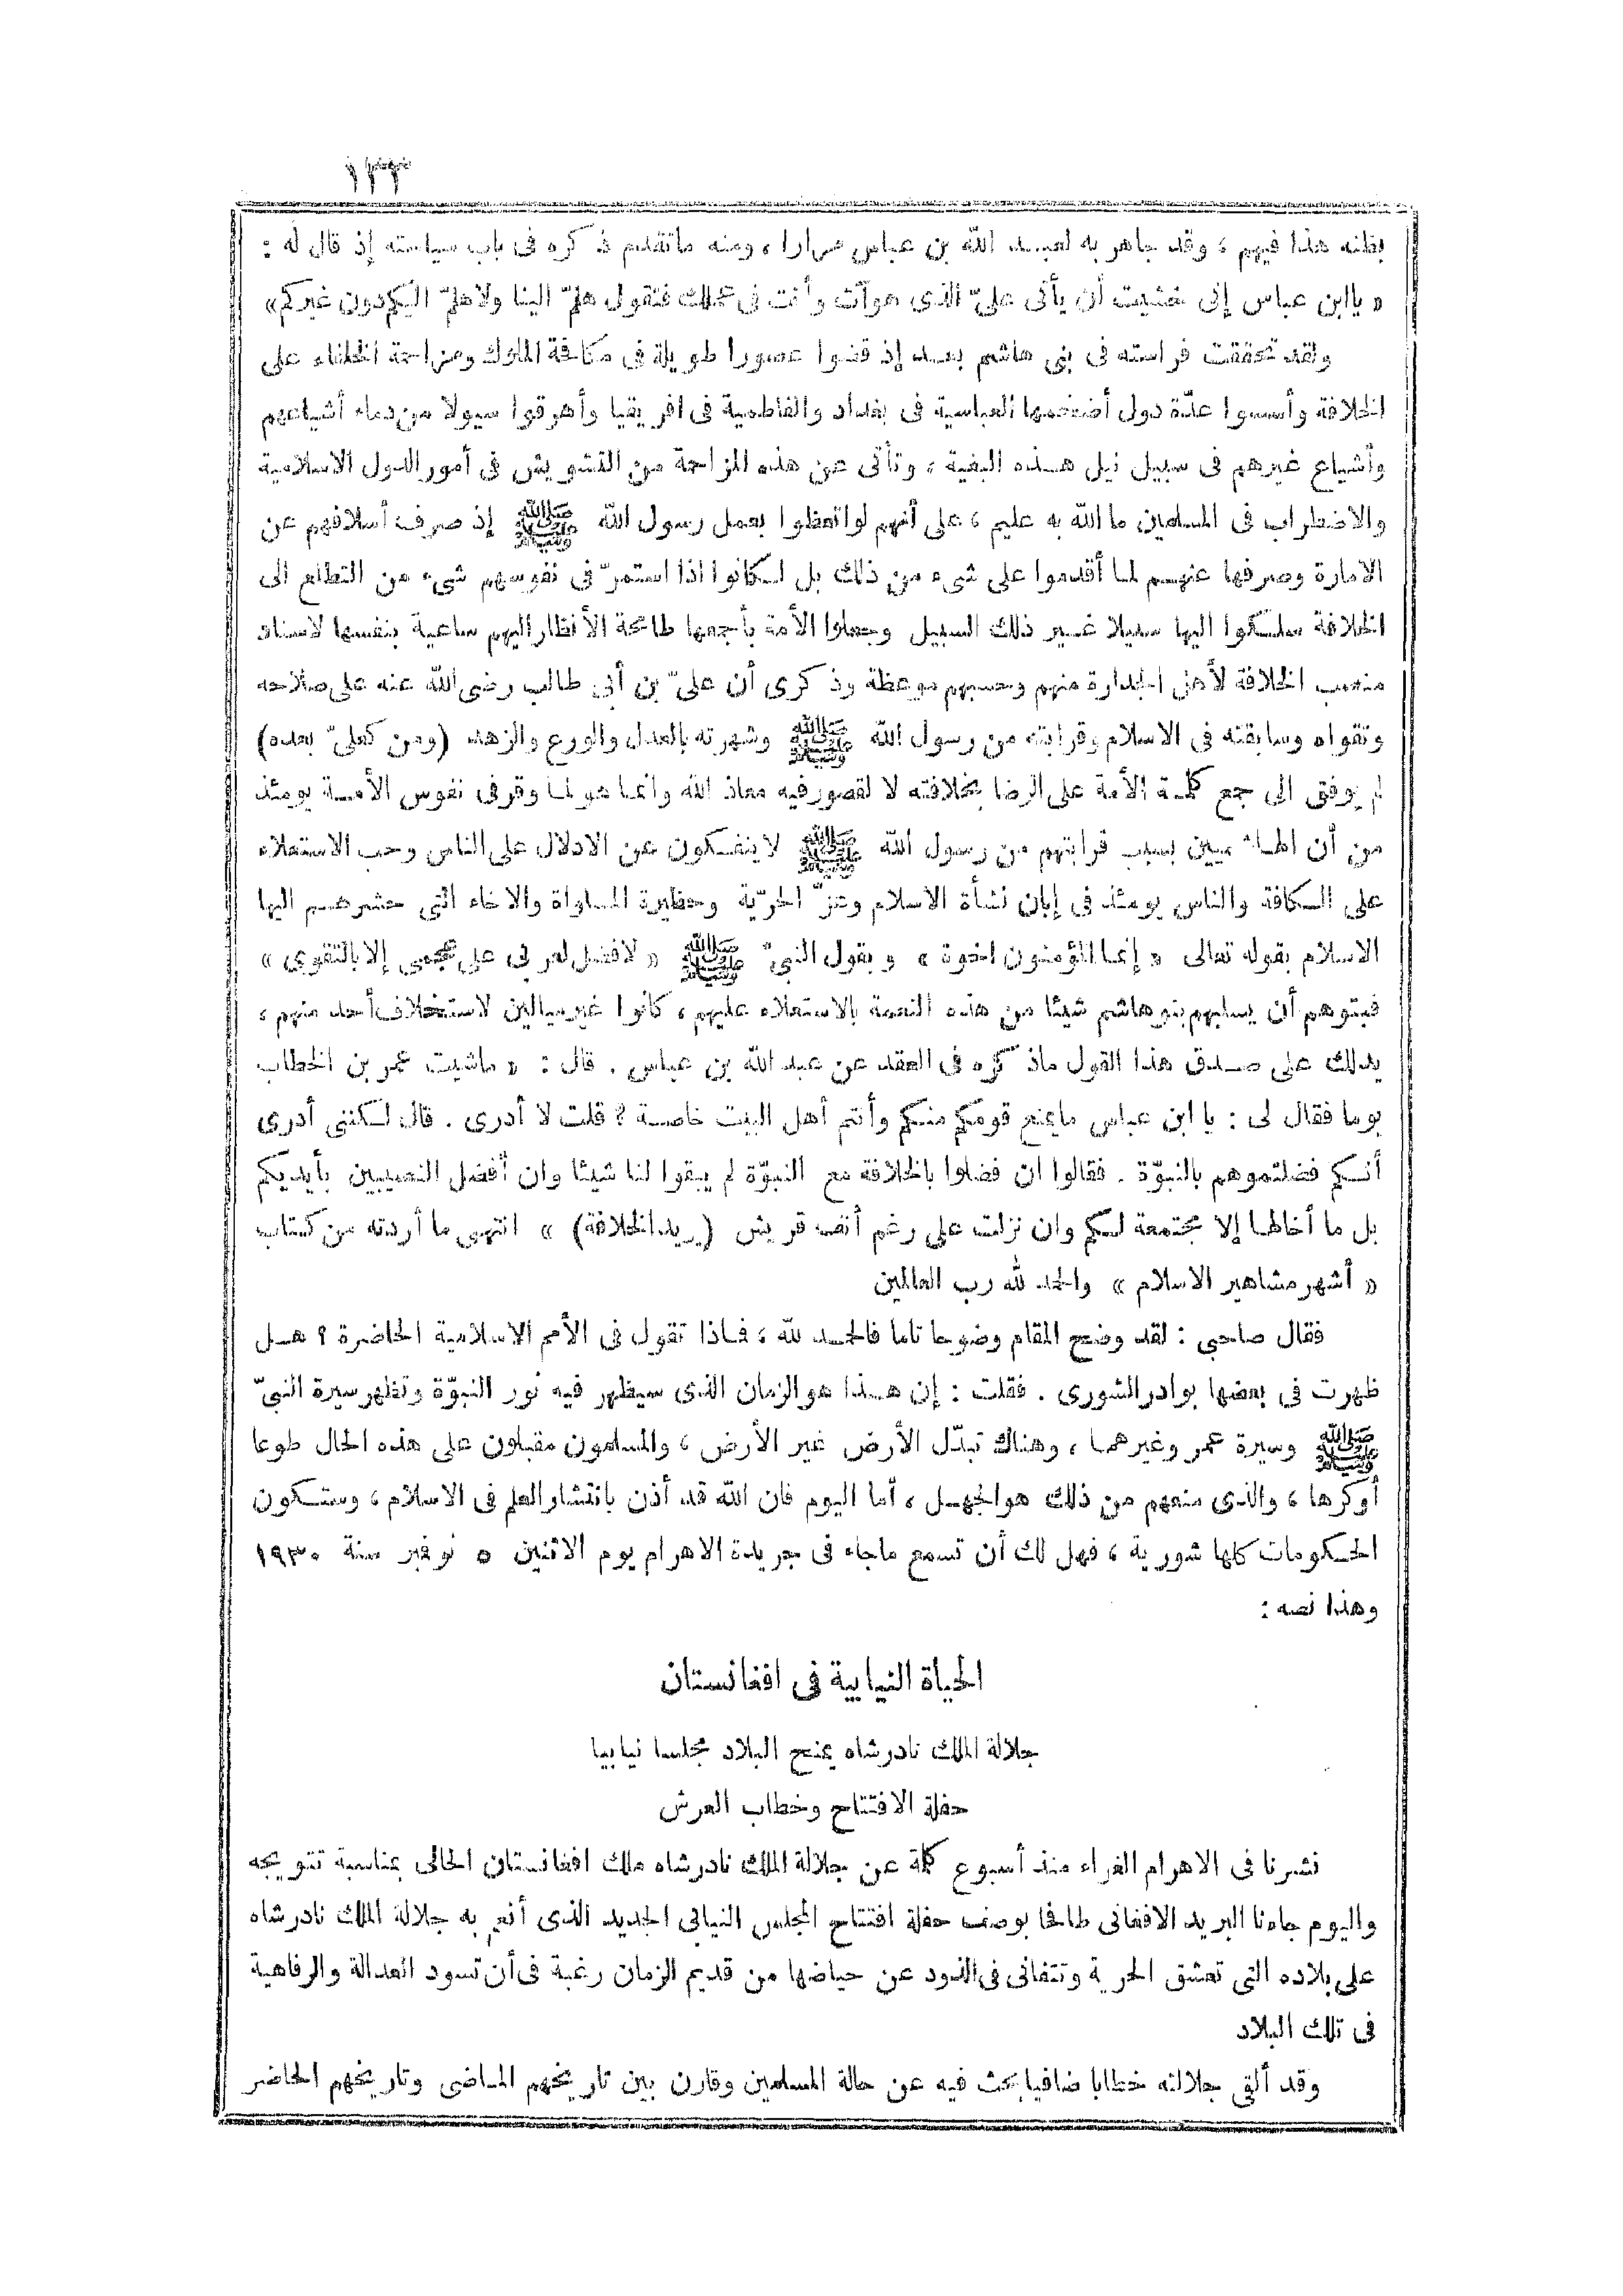 ١٣٣
بظنه هذا فيهم ، وقد جاهر به لعبد الله بن عباس مرارا ، ومنه ماتقدم ذكره فى باب سياسته إذ قال له :
« يا ابن عباس إنى خشيت أن يأتى علىّ الذى هوآت وأنت فى عملك فتقول هلمّ الينا ولا هلمّ اليكم دون غيركم »
ولقد تحققت فراسته فى بنى هاشم بعد إذ قضوا عصورا طويلة فى مكافحة الملوك ومزاحمة الخلفاء على
الخلافة وأسسوا عدّة دول أضخمها العباسية فى بغداد والفاطمية فى افريقيا وأهرقوا سيولا من دماء أشياعهم
وأشياع غيرهم فى سبيل نيل هذه البغية ، وتأتى عن هذه المزاحمة من التشويش فى أمور الدول الاسلامية
والاضطراب فى المسلمين ما الله به عليم ، على أنهم لو اتعظوا بعمل رسول الله ﷺ إذ صرف أسلافهم عن
الامارة وصرفها عنهم لما أقدموا على شىء من ذلك بل لكانوا اذا استمرّ فى نفوسهم شىء من التطلع الى
الخلافة سلكوا اليها سبيلا غير ذلك السبيل وجعلوا الأمة بأجمعها طامحة الأنظار اليهم ساعية بنفسها لاسناد
منصب الخلافة لأهل الجدارة منهم وحسبهم موعظة وذكرى أن علىّ بن أبى طالب رضى الله عنه على صلاحه
وتقواه وسابقته فى الاسلام وقرابته من رسول الله ﷺ وشهرته بالعدل والورع والزهد (ومن كعلىّ بعده)
لم يوفق الى جمع كلمة الأمة على الرضا بخلافته لا لقصور فيه معاذ الله وانما هو لما وقر فى نفوس الأمة يومئذ
من أن الهاشميين بسبب قرابتهم من رسول الله ﷺ لاينفكون عن الادلال على الناس وحب الاستعلاء
على الكافة والناس يومئذ فى إبان نشأة الاسلام وعزّ الحرّية وحظيرة المساواة والاخاء التى حشرهم اليها
الاسلام بقوله تعالى « إنما المؤمنون اخوة » وبقول النبىّ ﷺ « لافضل لعربى على عجمى إلا بالتقوى »
فبتوهم أن يسلبهم بنو هاشم شيئا من هذه النعمة بالاستعلاء عليهم ، كانوا غير ميالين لاستخلاف أحد منهم ،
يدلك على صدق هذا القول ماذكره فى العقد عن عبد الله بن عباس . قال : « ماشيت عمر بن الخطاب
يوما فقال لى : يا ابن عباس مايمنع قومكم منكم وأنتم أهل البيت خاصة ؟ قلت لا أدرى . قال لكننى أدرى
أنكم فضلتموهم بالنبوّة . فقالوا ان فضلوا بالخلافة مع النبوّة لم يبقوا لنا شيئا وان أفضل النصيبين بأيديكم
بل ما أخالها إلا مجتمعة لكم وان نزلت على رغم أنف قريش (يريد الخلافة) » انتهى ما أردته من كتاب
« أشهر مشاهير الاسلام » والحمد لله رب العالمين
فقال صاحبى : لقد وضح المقام وضوحا تاما فالحمد لله ، فماذا تقول فى الأمم الاسلامية الحاضرة ؟ هل
ظهرت فى بعضها بوادر الشورى . فقلت : إن هذا هو الزمان الذى سيظهر فيه نور النبوّة وتظهر سيرة النبىّ
ﷺ وسيرة عمر وغيرهما ، وهناك تبدّل الأرض غير الأرض ، والمسلمون مقبلون على هذه الحال طوعا
أوكرها ، والذى منعهم من ذلك هو الجهل ، أما اليوم فان الله قد أذن بانتشار العلم فى الاسلام ، وستكون
الحكومات كلها شورية ، فهل لك أن تسمع ماجاء فى جريدة الاهرام يوم الاثنين ٥ نوفبر سنة ١٩٣٠
وهذا نصه :
الحياة النيابية فى افغانستان
جلالة الملك نادرشاه يمنح البلاد مجلسا نيابيا
حفلة الافتتاح وخطاب العرش
نشرنا فى الاهرام الغراء منذ أسبوع كلمة عن جلالة الملك نادرشاه ملك افغانستان الحالى بمناسبة تتويجه
واليوم جاءنا البريد الافغانى طافحا بوصف حفلة افتتاح المجلس النيابى الجديد الذى أنعم به جلالة الملك نادرشاه
على بلاده التى تعشق الحرية وتتفانى فى الذود عن حياضها من قديم الزمان رغبة فى أن تسود العدالة والرفاهية
فى تلك البلاد
وقد ألقى جلالته خطابا ضافيا بحث فيه عن حالة المسلمين وقارن بين تاريخهم الماضى وتاريخهم الحاضر